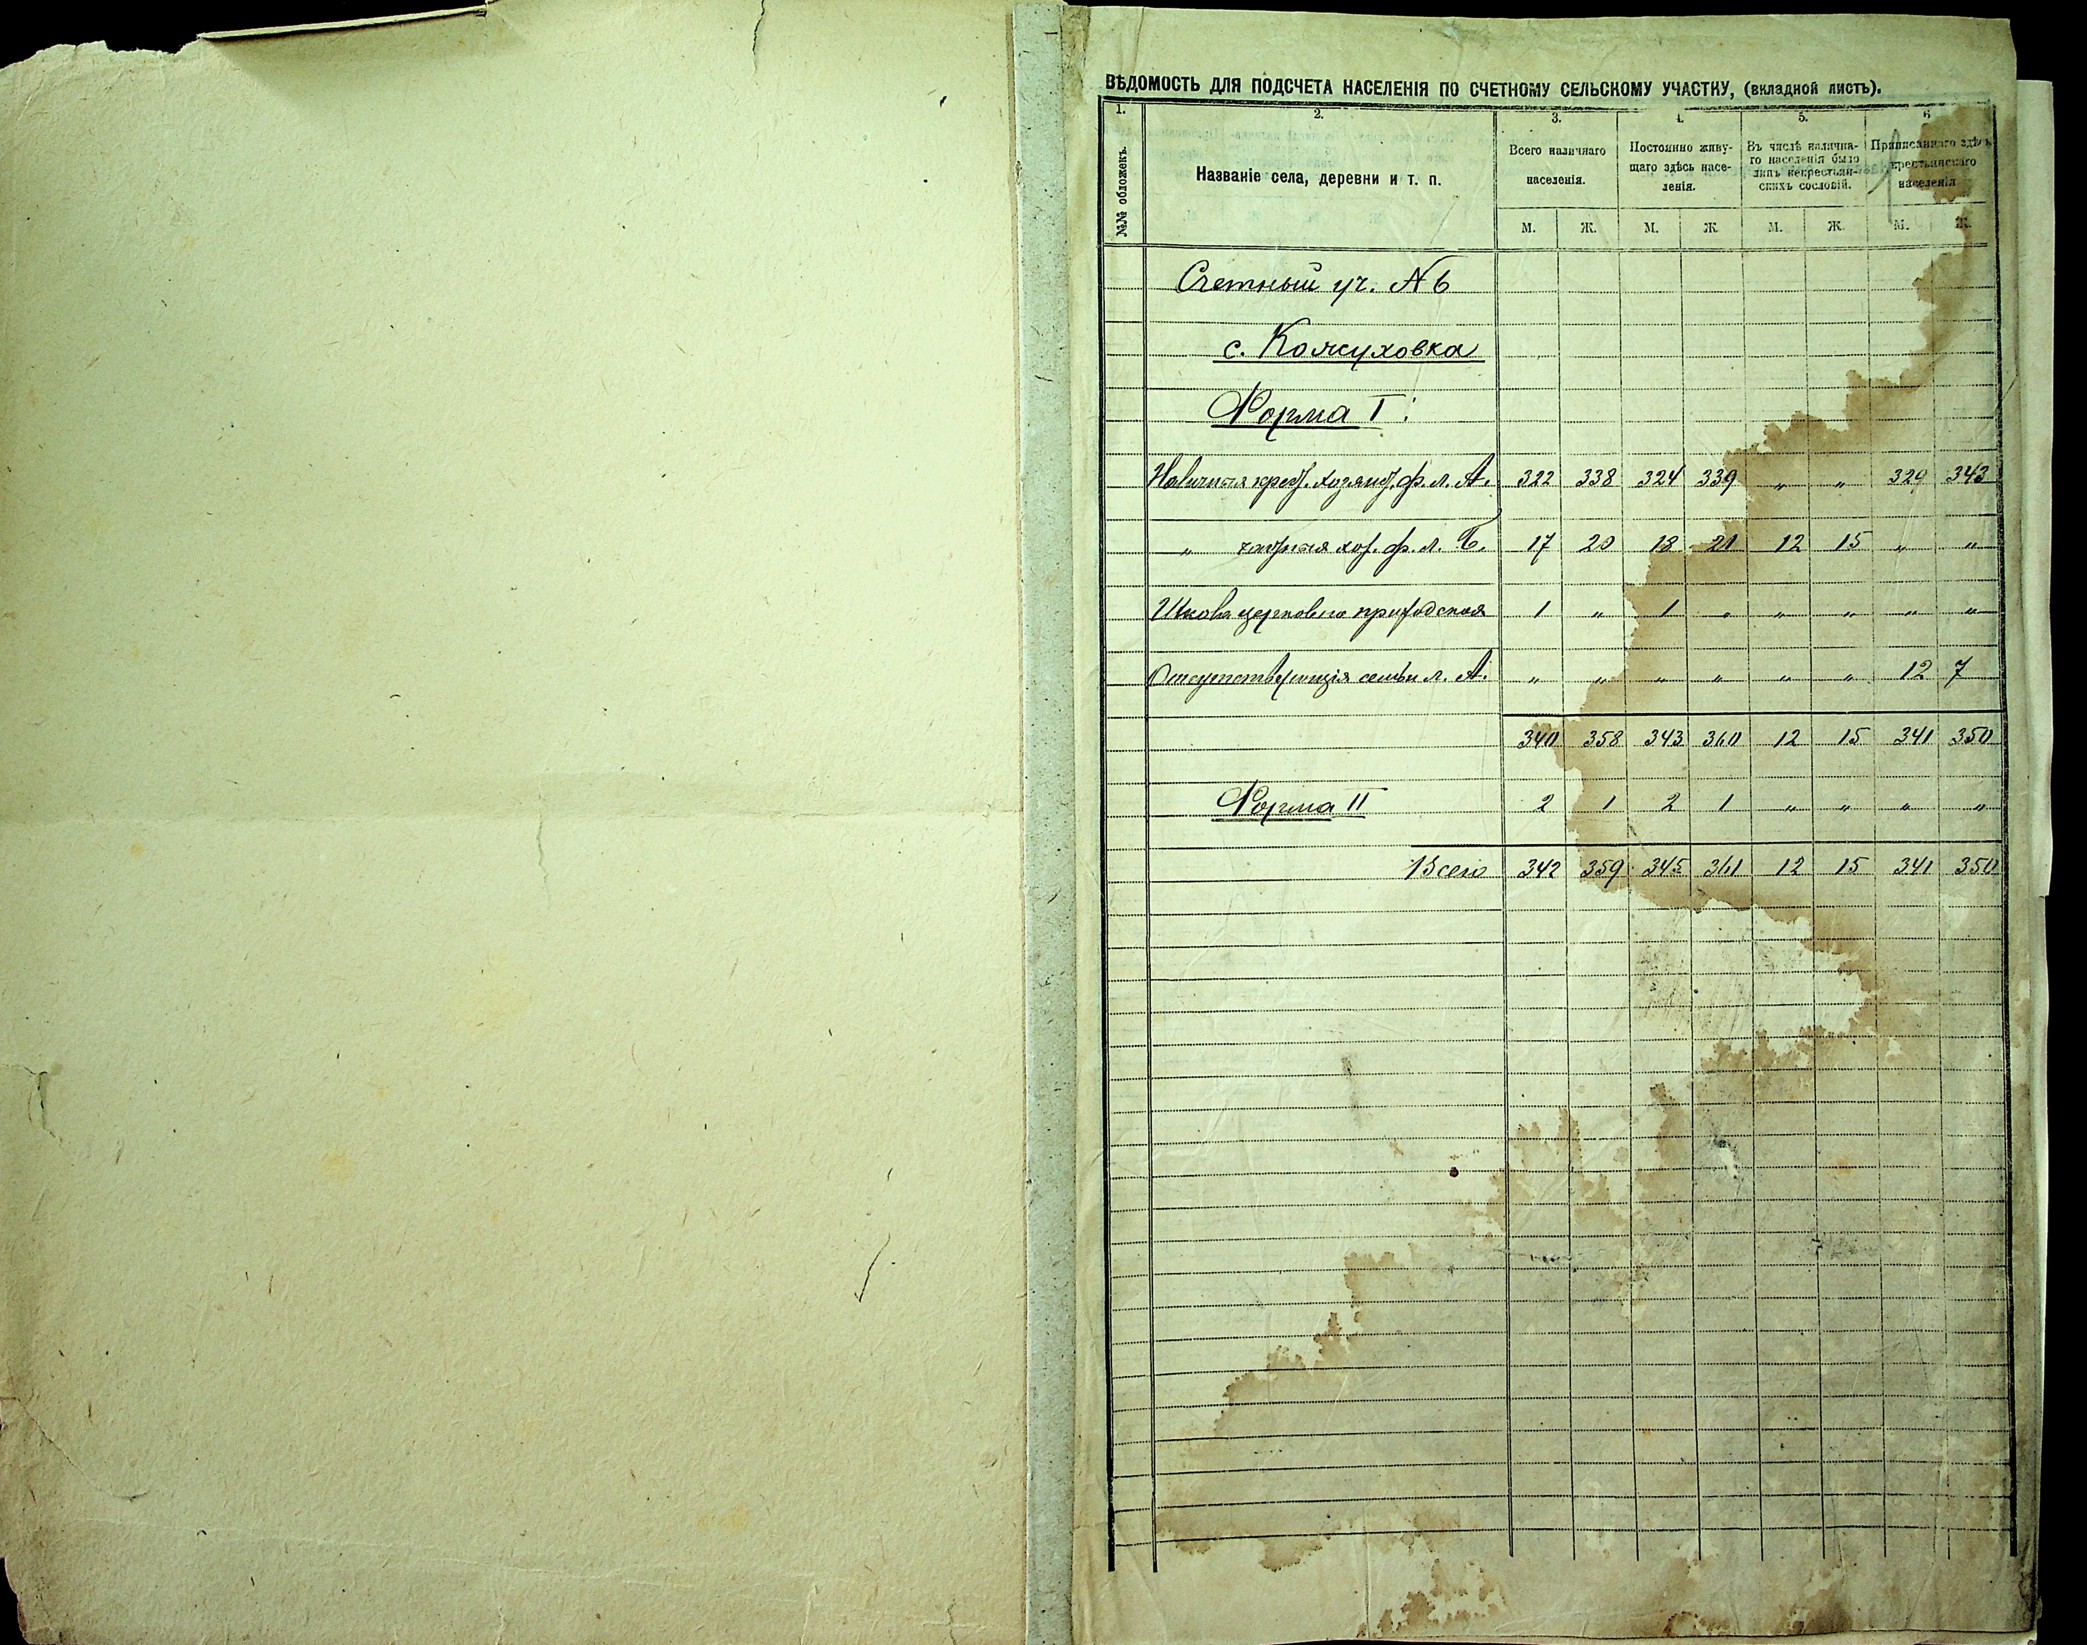 ВѢДОМОСТЬ ДЛЯ ПОДСЧЕТА НАСЕЛЕНІЯ ПО СЧЕТНОМУ СЕЛЬСКОМУ УЧАСТКУ, (вкладной листъ).
1. 2. 3. 4. 5. 6
№№ обложекъ.
Названіе села, деревни и т. п.
Всего наличнаго
населенія.
Постоянно живу-
щаго здѣсь насе-
ленія.
Въ числѣ налична-
го населенія было
лицъ некрестьян-
скихъ сословій.
Приписаннаго здѣсь
крестьянскаго
населенія
М. Ж. М. Ж. М. Ж. М. Ж.
Счетный уч. № 6
с. Кожуховка
Форма I:
Наличныя крест. хозяйст. ф. л. А. 322 338 324 339 „ „ 329 343
„ хоз. ф. л. Б. 17 20 18 21 12 15 „ „
Школа церковно приходская 1 „ 1 „ „ „ „ „
Отсутствующія семьи л. А. „ „ „ „ „ „ 12 7
340 358 343 360 12 15 341 350
Форма II 2 1 2 1 „ „ „ „
Всего 342 359 345 361 12 15 341 350